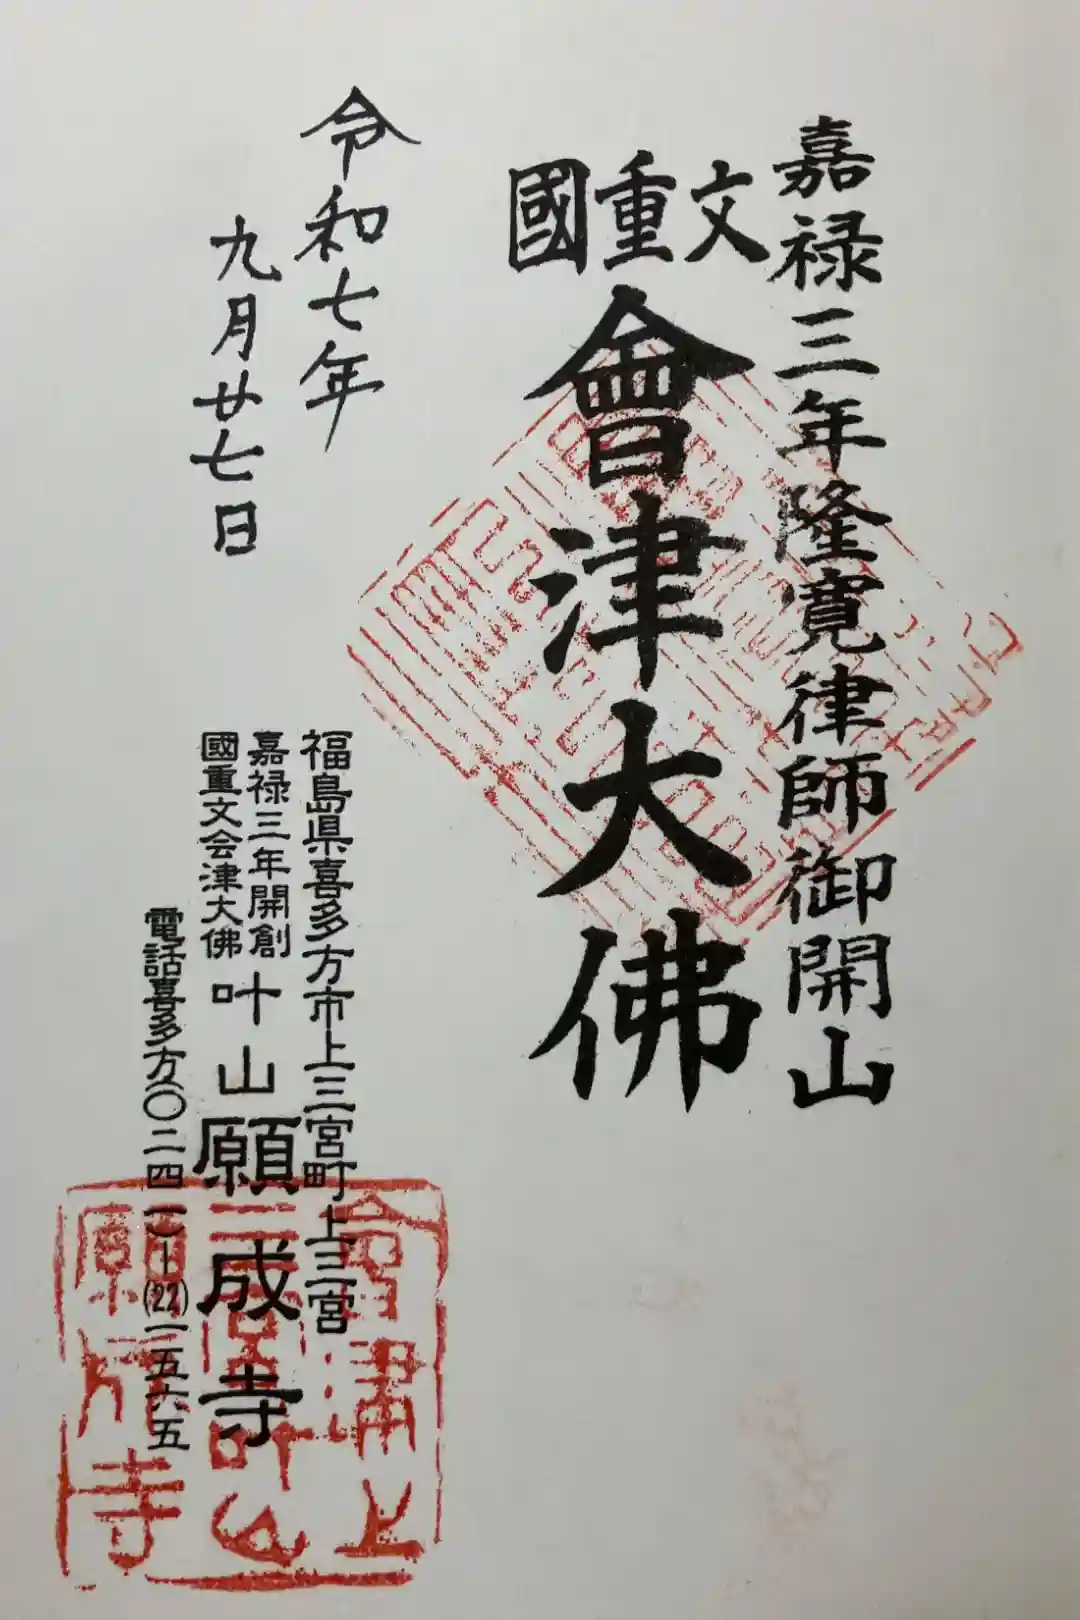 嘉禄三年隆寛律師御開山
國重文
會津大佛
令和七年
九月廿七日
福島県喜多方市上三宮町上三宮
嘉禄三年開創
國重文会津大佛
叶山願成寺
電話喜多方(〇二四一)-(22)一五六五
会津上
三宮叶山
願成寺